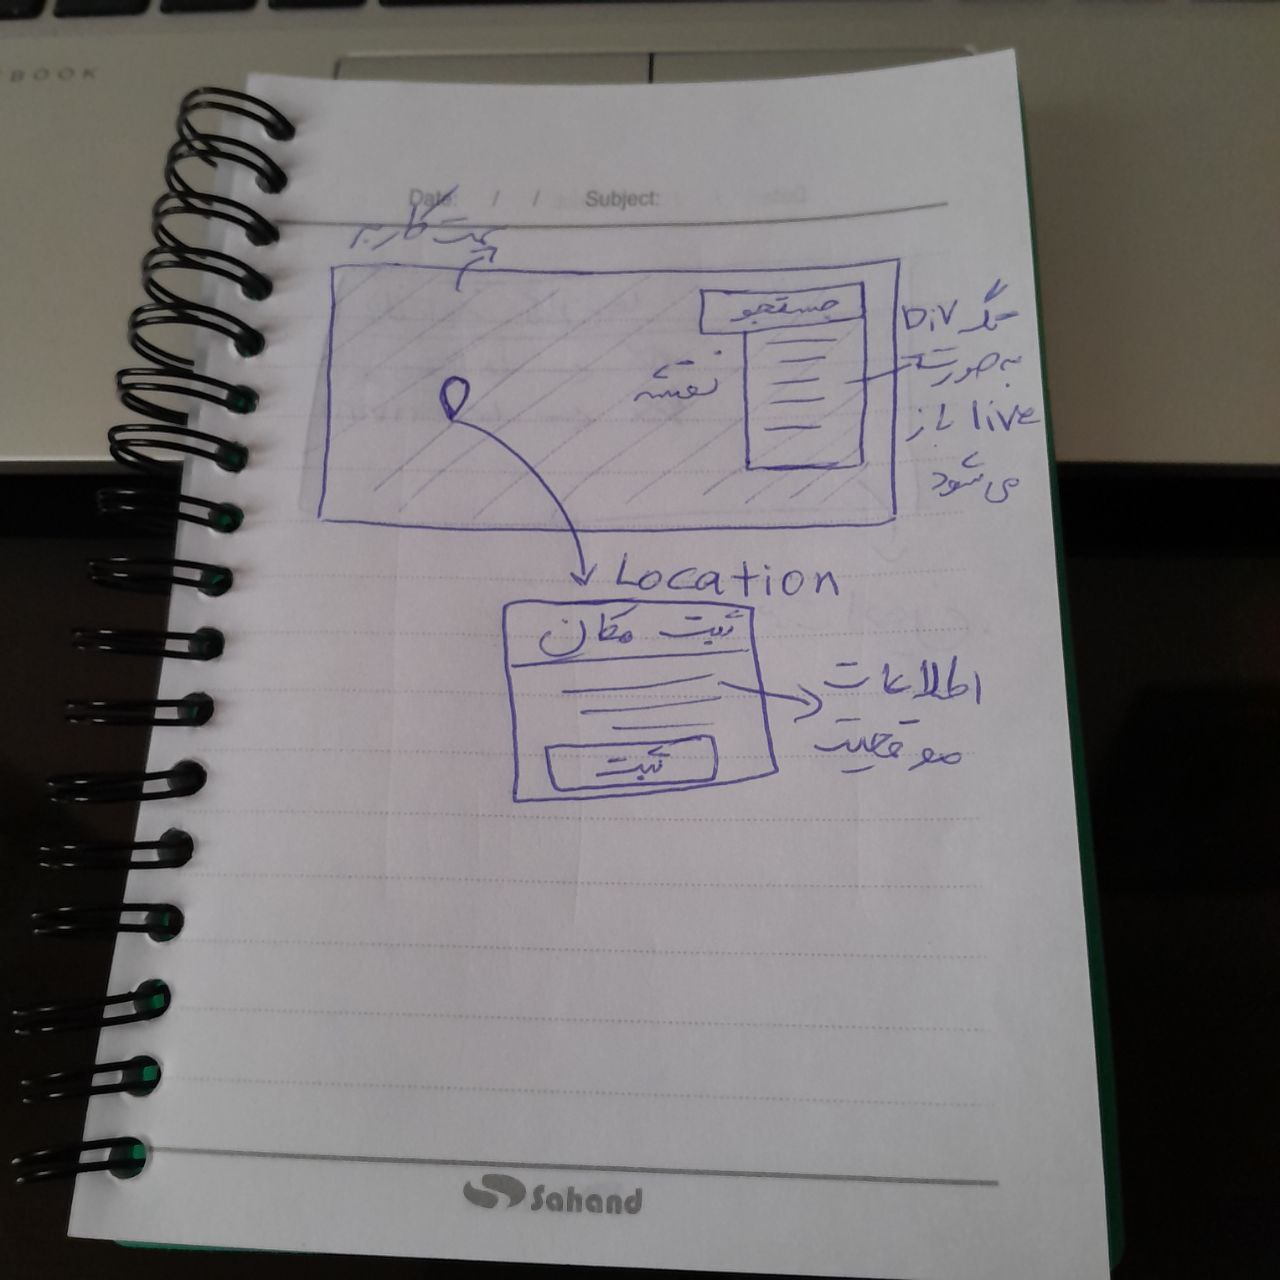 BOOK
Date: / / Subject:
سمت کاربر
جستجو
نقشه
تگ DIV
به صورت
live باز
می شود
Location
ثبت مکان
اطلاعات
موقعیت
ثبت
Sahand